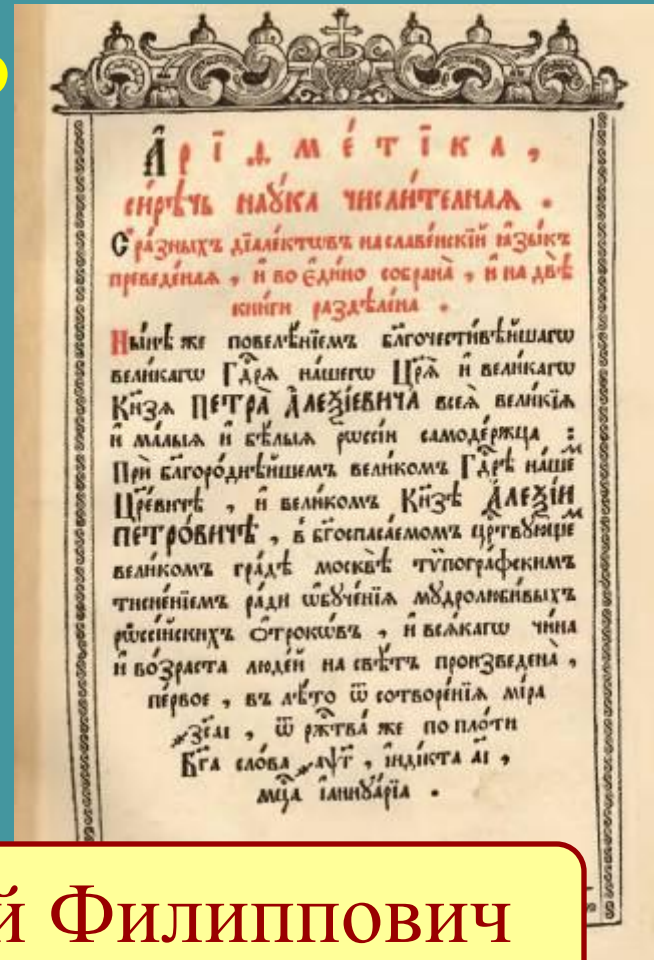 Арїѳме́тїка,
си́рѣчь наꙋ́ка числи́телнаѧ.
С̾ ра́зныхъ дїале́ктѡвъ на славе́нскїй ꙗ҆зы́къ
преведе́наѧ, и҆ во є҆ди́но собрана̀, и҆ на двѣ̀
кни́ги раздѣле́на.
Ны́нѣ же повелѣ́нїемъ бл҃гочести́вѣйшагѡ
вели́кагѡ Гдⷭ҇рѧ на́шегѡ Цр҃ѧ̀ и҆ вели́кагѡ
Кн҃зѧ ПЕТРА̀ А҆ЛЕѮІ́ЕВИЧА всеѧ̀ вели́кїѧ
и҆ ма́лыѧ и҆ бѣ́лыѧ рѡссі́и самоде́ржца :
Прѝ бл҃горо́днѣйшемъ вели́комъ Гдⷭ҇рѣ на́шеⷨ
Цр҃е́вичѣ, и҆ вели́комъ Кн҃зѣ А҆ЛЕѮІ́И
ПЕТРО́ВИЧѢ, в̾ бг҃оспаса́емомъ црⷭ҇твꙋ́ющеⷨ
вели́комъ гра́дѣ москвѣ̀ тѷпогра́фскимъ
тисне́нїемъ ра́ди ѡ҆бꙋче́нїѧ мꙋдролюби́выхъ
рѡссі́йскихъ ѻ҆́трокѡвъ, и҆ всѧ́кагѡ чи́на
и҆ во́зраста люде́й на свѣ́тъ произведена̀,
пе́рвое, въ лѣ́то ѿ сотворе́нїѧ мі́ра
҂зс҃аі, ѿ ржⷭ҇тва́ же по пло́ти
Бг҃а сло́ва ҂аѱ҃г, і҆нді́кта а҃і,
мцⷭ҇а і҆аннꙋа́рїа.
й Филиппович